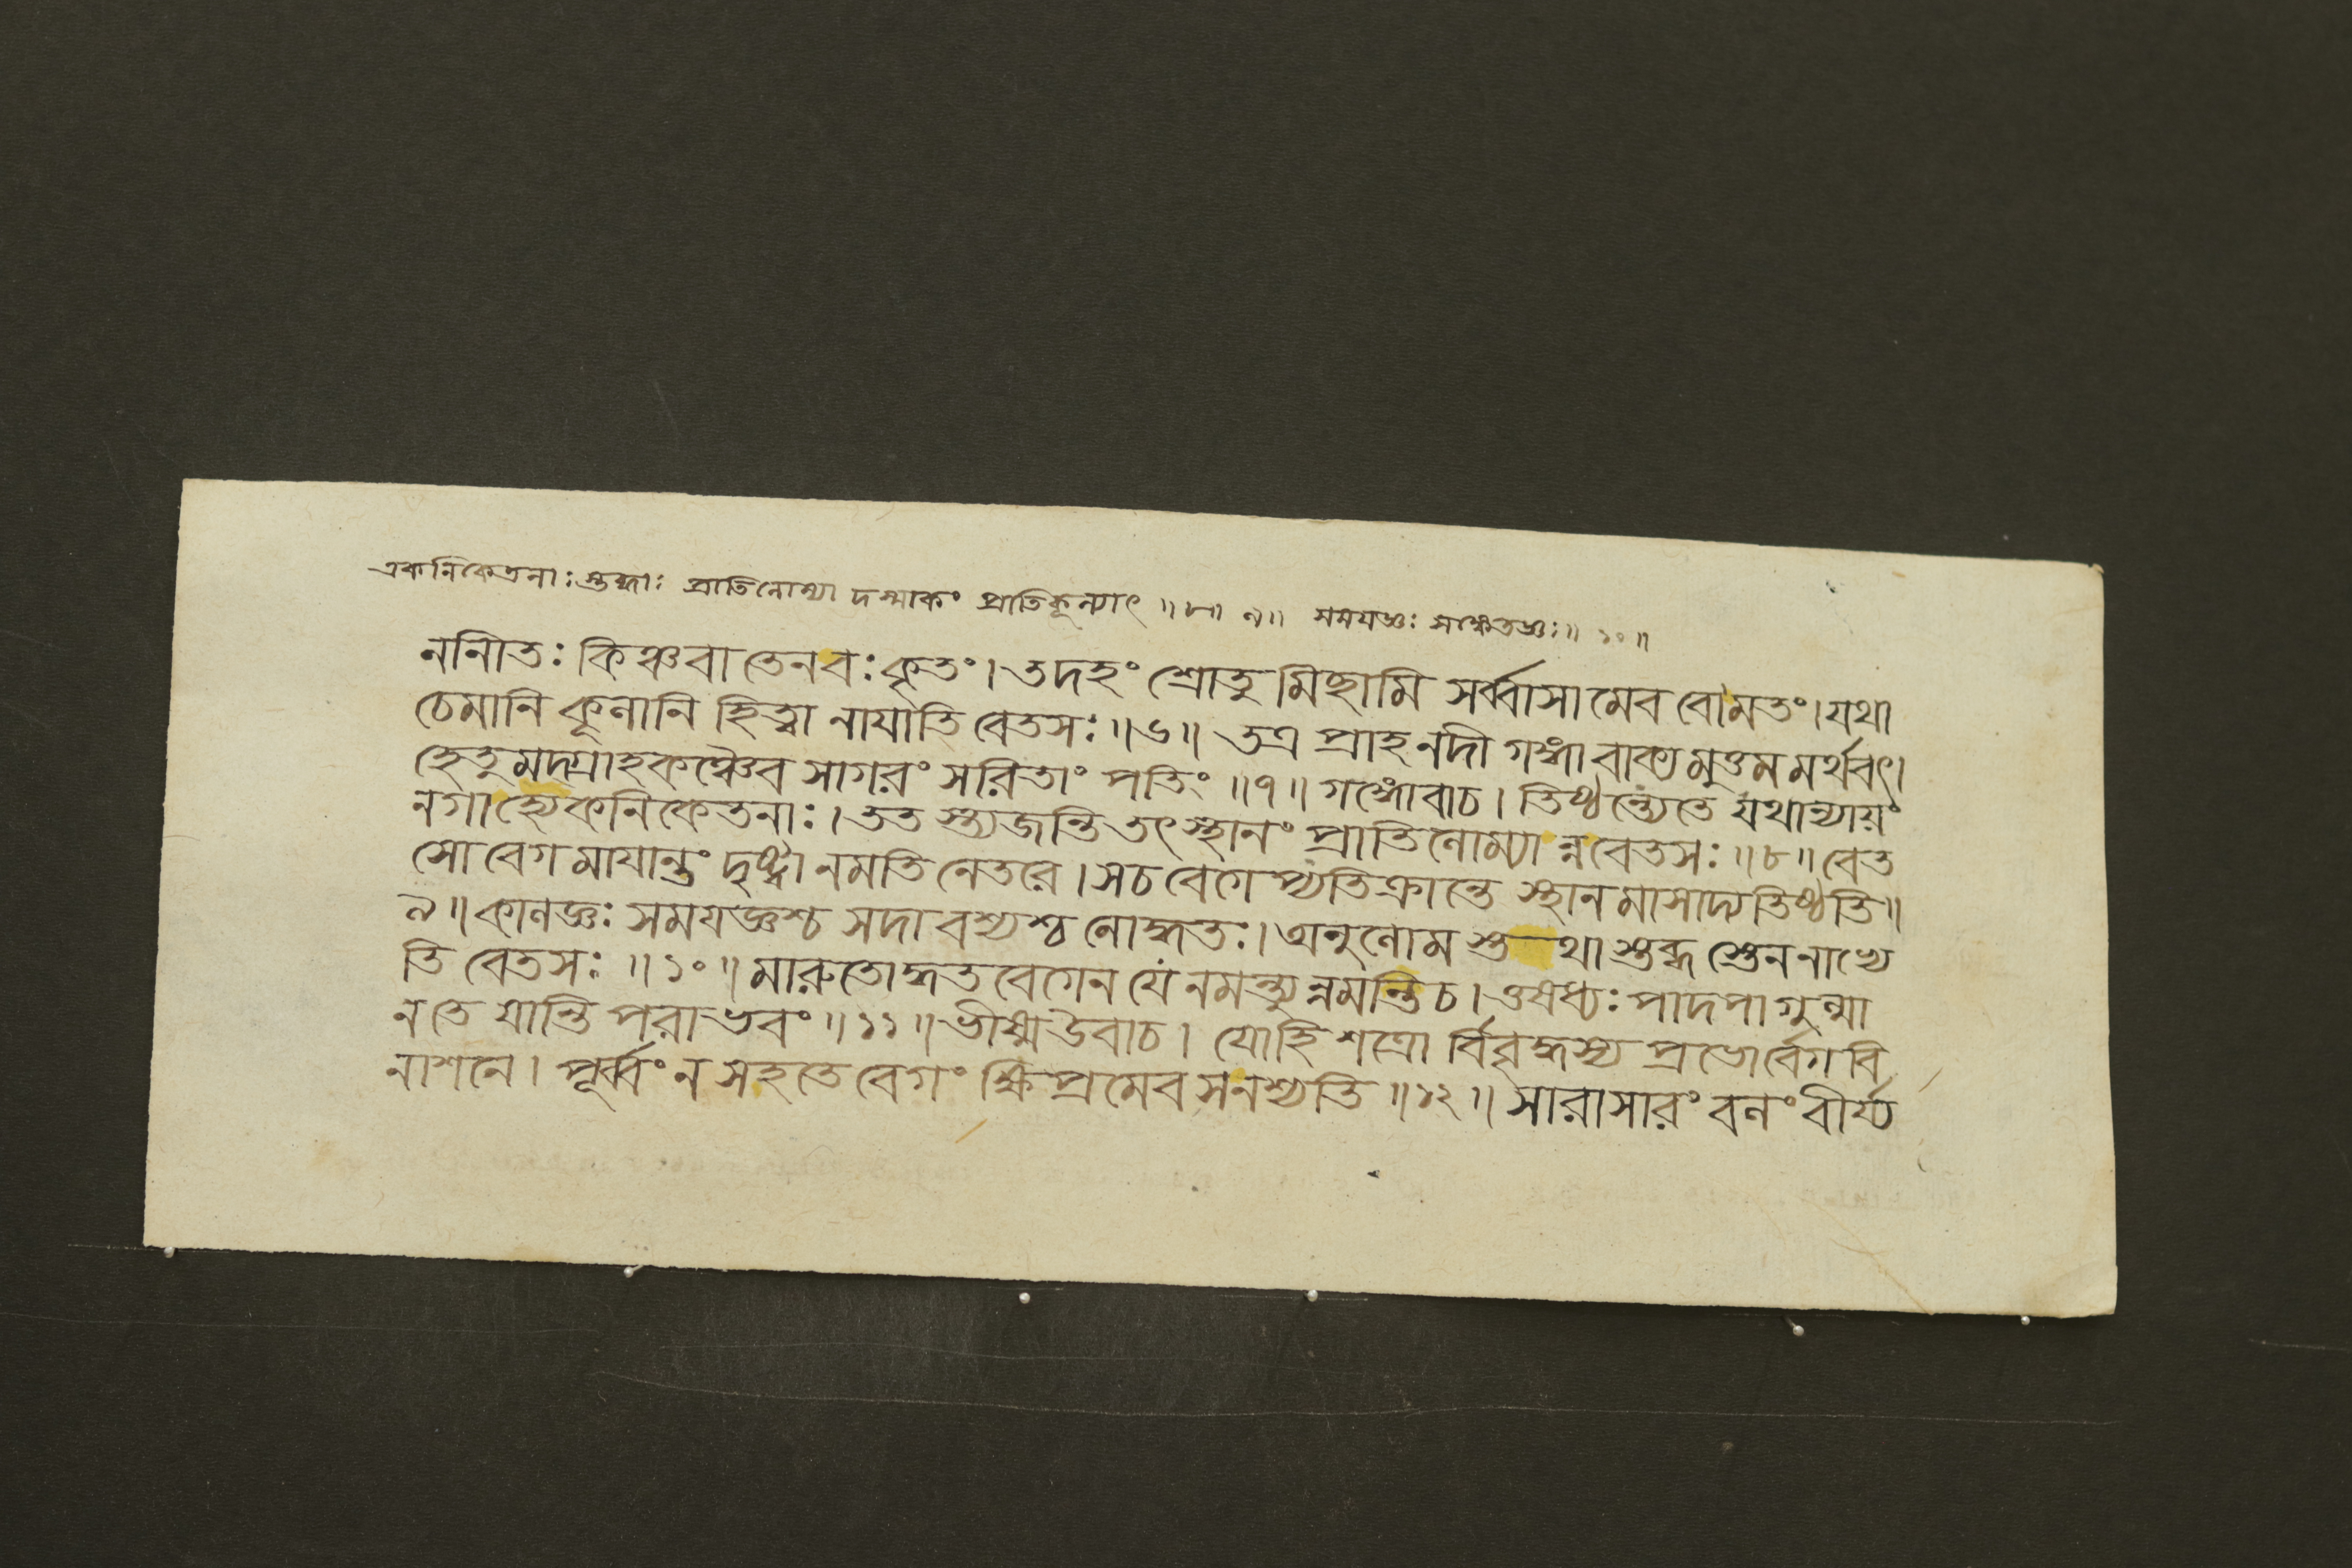 একনিকেতনাঃ স্তব্ধাঃ প্রাতিলোম্যা দস্মাকং প্রাতিকূল্যাৎ ॥৮॥ ৯॥ সময়জ্ঞঃ সঙ্কেতজ্ঞঃ॥ ১০॥
ননীতঃ কিঞ্চবা তেনবঃ কৃতং। তদহং শ্রোতু মিছামি সর্ব্বাসা মেব বোমতং। যথা
চেমানি কূলানি হিত্বা নাযাতি বেতসঃ॥৬॥ তত্র প্রাহ নদী গঙ্গা বাক্য মুত্তম মর্থবৎ।
হেতু মদ্গ্রাহকঞ্চৈব সাগরং সরিতাং পতিং ॥৭॥ গঙ্গোবাচ। তিষ্ঠন্ত্যেতে যথান্যায়ং
নগা হ্যেকনিকেতনাঃ। তত স্ত্যজন্তি তৎ স্থানং প্রাতিলোম্যা ন্নবেতসঃ॥৮॥ বেত
সো বেগ মাযান্তং দৃষ্ট্বা নমতি নেতরে। সচ বেগেঽভ্যতিক্রান্তে স্থান মাসাদ্য তিষ্ঠতি॥
৯॥ কালজ্ঞঃ সময়জ্ঞশ্চ সদা বশ্যশ্চ নোদ্ধতঃ। অনুলোম স্ত থা স্তব্ধ স্তেন নাভ্যে
তি বেতসঃ ॥১০॥ মারুতোদ্ধত বেগেন যে নমন্ত্যুন্নমন্তি চ। ওষধ্যঃ পাদপা গুল্মা
নতে যান্তি পরাভবং॥১১॥ ভীষ্ম উবাচ। যোহি শত্রো র্বিবৃদ্ধস্য প্রভোর্বেগ বি
নাশনে। পূর্ব্বং ন সহতে বেগং ক্ষিপ্রমেব সনশ্যতি॥১২॥ সারাসারং বলং বীর্য্য